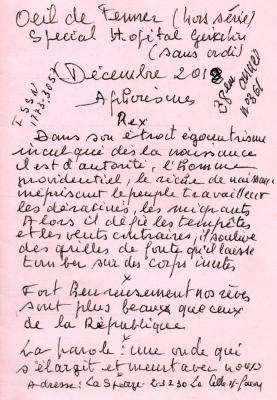 Oeil de Fennec (hors série)
Special Hopital
(sans ordi)
Décembre 2018
ISSN
1772-3057
38em année
n° 361
Aphorismes
Rex
Dans son étroit égocentrisme
inculqué dès la naissance
il est d'autorité, l'homme
providentiel, le riche de naissance
méprisant le peuple travailleur
les déracinés, les migrants
Alors il défie les tempêtes
et les vents contraires, il soulève
des grilles de fonte qu'il laisse
tomber sur des corps inertes
x
Fort Heureusement nos rêves
sont plus beaux que ceux
de la République
x
La parole : une onde qui
s'élargit et meurt avec nous
Adresse: La 23230 La Celle s/